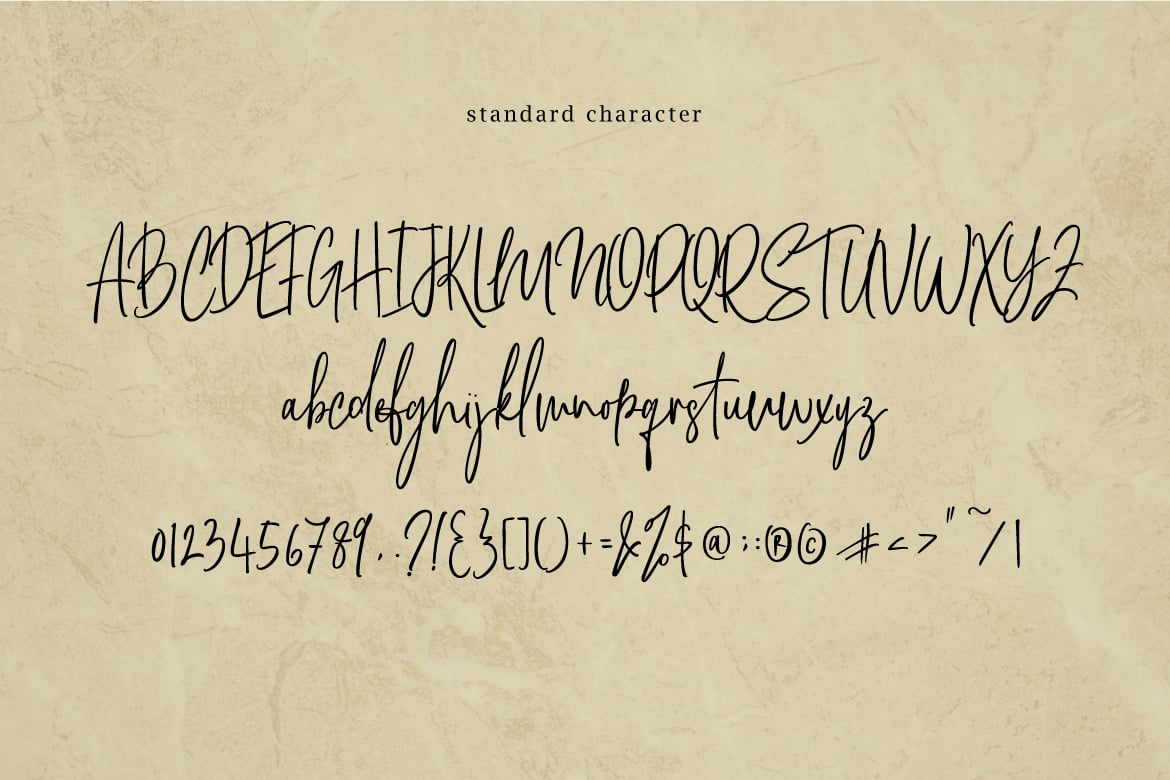 standard character
ABCDEFGHIJKLMNOPQRSTUVWXYZ
abcdefghijklmnopqrstuvwxyz
0123456789,.?!{}[]()+=&%$@;:®©#<>"~/|